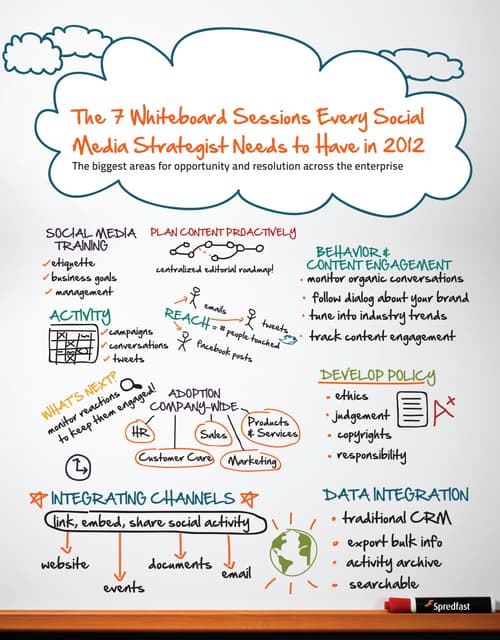 The 7 Whiteboard Sessions Every Social
Media Strategist Needs to Have in 2012
The biggest areas for opportunity and resolution across the enterprise
SOCIAL MEDIA
TRAINING
etiquette
business goals
management
PLAN CONTENT PROACTIVELY
centralized editorial roadmap!
BEHAVIOR &
CONTENT ENGAGEMENT
monitor organic conversations
follow dialog about your brand
tune into industry trends
track content engagement
ACTIVITY
campaigns
conversations
tweets
emails
REACH = # people touched
tweets
facebook posts
WHAT'S NEXT?
monitor reactions
to keep them engaged!
ADOPTION
COMPANY-WIDE
HR
Sales
Products
& Services
Customer Care
Marketing
DEVELOP POLICY
ethics
judgement
copyrights
responsibility
A+
INTEGRATING CHANNELS
link, embed, share social activity
website
events
documents
email
DATA INTEGRATION
traditional CRM
export bulk info
activity archive
searchable
Spredfast